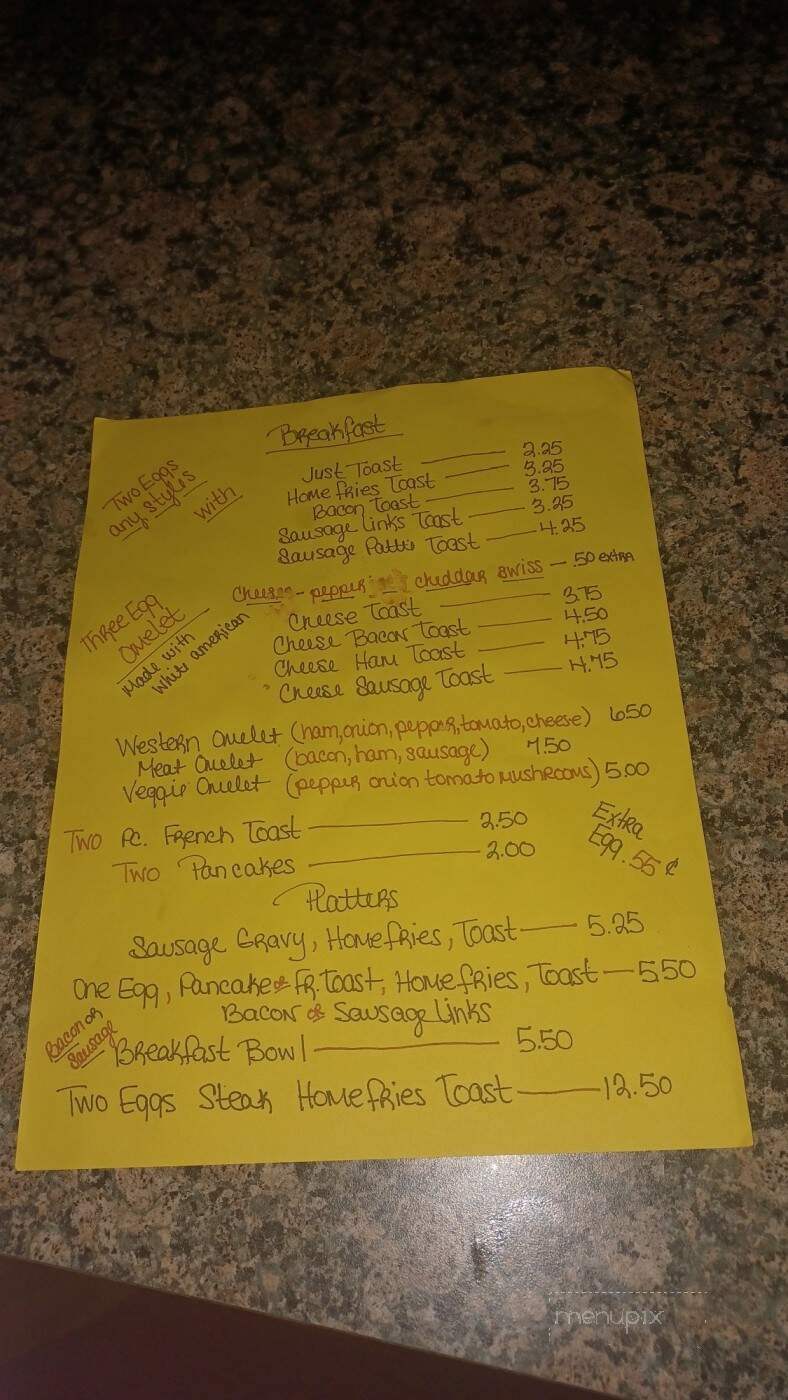 Breakfast
Two Eggs
any styles
with
Just Toast 2.25
Home fries Toast 3.25
Bacon Toast 3.75
Sausage links Toast 3.25
Sausage Patti Toast 4.25
Cheeses - pepper cheddar swiss - .50 extra
Three Egg
Omelet
Made with
White american
Cheese Toast 3.75
Cheese Bacon Toast 4.50
Cheese Ham Toast 4.75
Cheese Sausage Toast 4.75
Western Omelet (ham, onion, pepper, tomato, cheese) 6.50
Meat Omelet (bacon, ham, sausage) 7.50
Veggie Omelet (pepper onion tomato mushrooms) 5.00
Two Pc. French Toast 2.50
Two Pancakes 2.00
Extra
Egg .55 ¢
Platters
Sausage Gravy, Homefries, Toast 5.25
One Egg, Pancake or Fr. Toast, Homefries, Toast 5.50
Bacon or Sausage Links
Bacon or
Sausage
Breakfast Bowl 5.50
Two Eggs Steak Homefries Toast 12.50
menupix